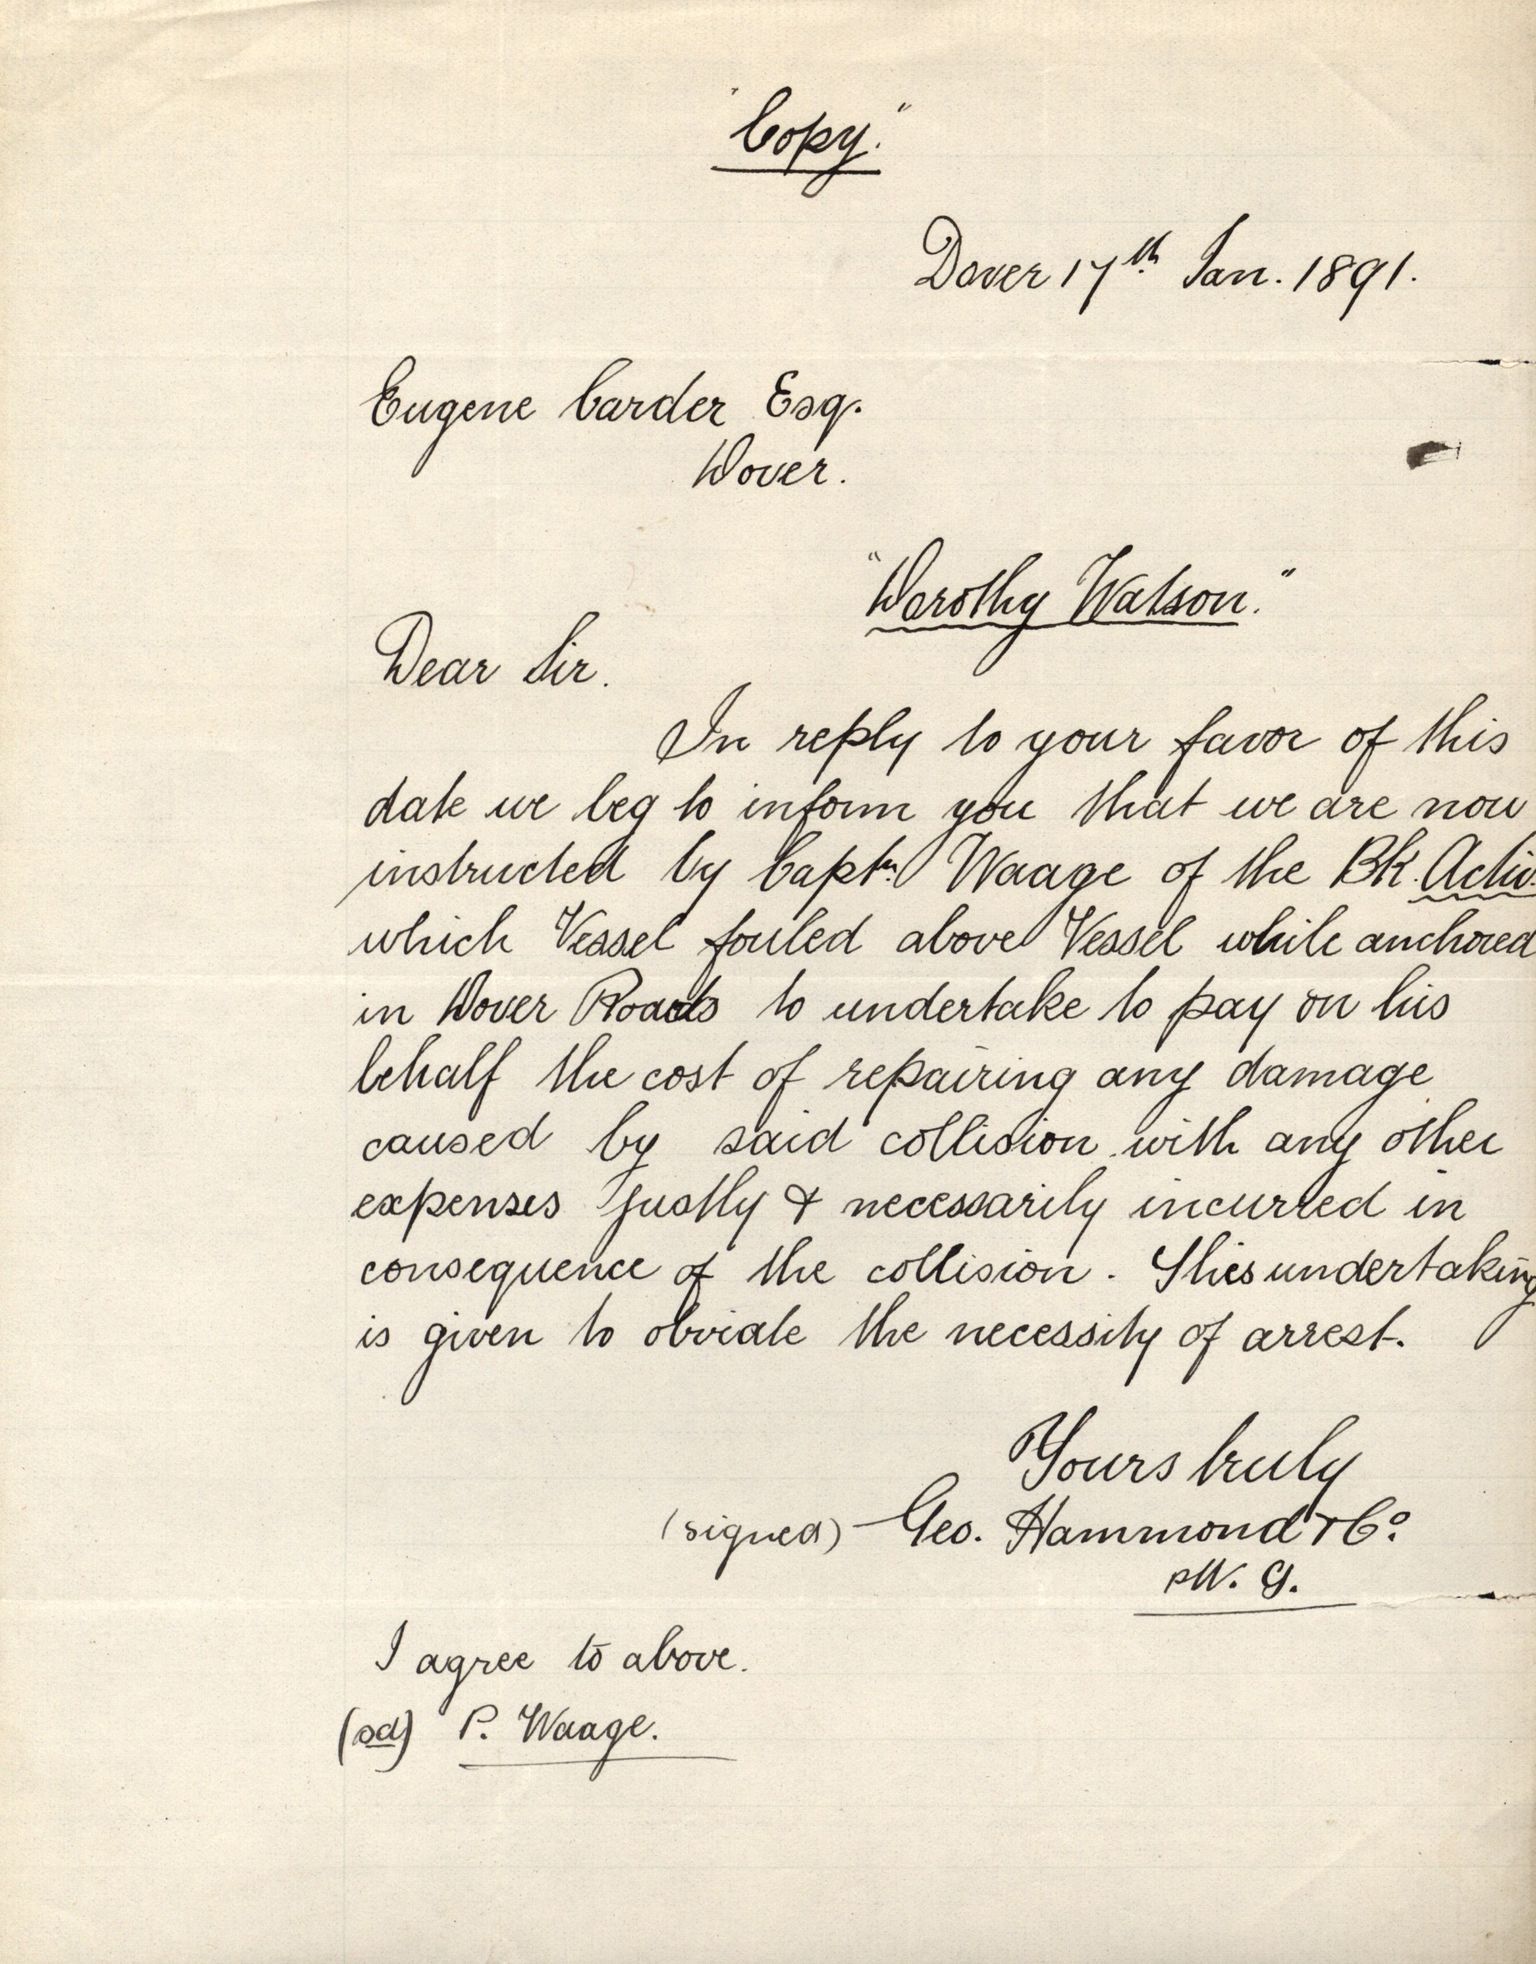 "Copy."
Dover 17th Jan. 1891.
Eugene Carder Esq.
Dover.
"Dorothy Watson."
Dear Sir.
In reply to your favor of this
date we beg to inform you that we are now
instructed by Captn. Waage of the Bk. Activ
which Vessel fouled above Vessel while anchored
in Dover Roads to undertake to pay on his
behalf the cost of repairing any damage
caused by said collision with any other
expenses justly & necessarily incurred in
consequence of the collision. This undertaking
is given to obviate the necessity of arrest.
Yours truly
(signed) Geo. Hammond & Co.
p W. G.
I agree to above.
(sd) P. Waage.